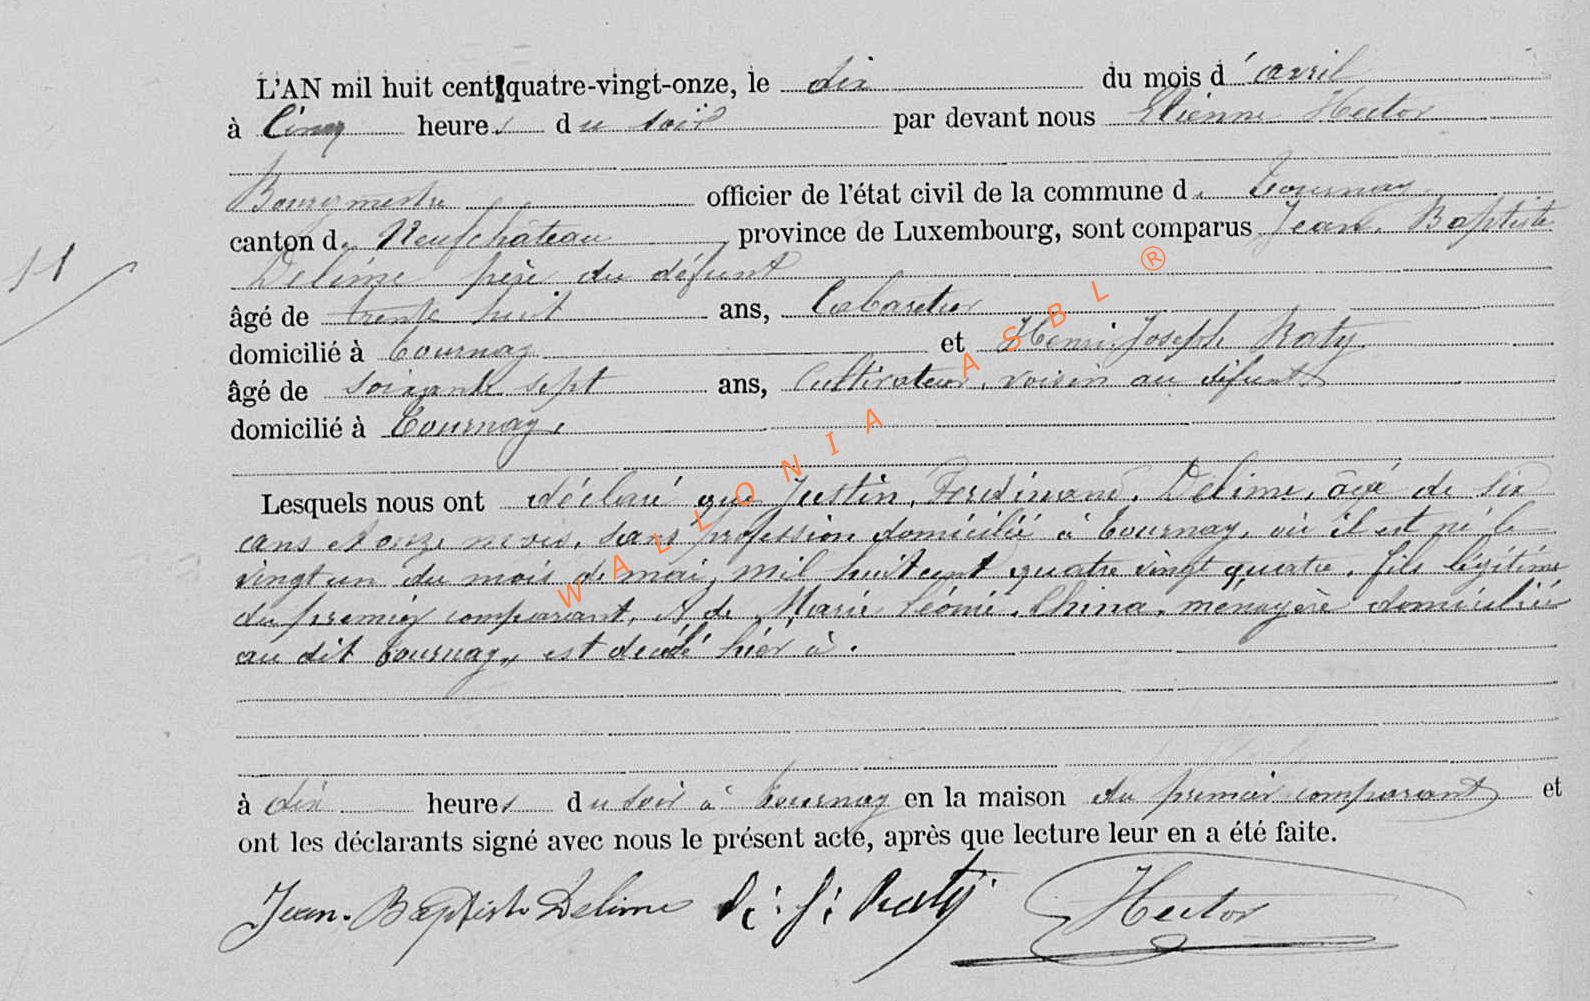 L'AN mil huit cent quatre-vingt-onze, le dix du mois d'avril
à Cinq heures du soir par devant nous Etienne Hector
Bourgmestre officier de l'état civil de la commune de Tournay
canton de Neufchâteau, province de Luxembourg, sont comparus Jean, Baptiste
Delime père du défunt
11
âgé de trente huit ans, Cabaretier
domicilié à Tournay et Henri Joseph Raty
âgé de soixante sept ans, Cultivateur, voisin au défunt
domicilié à Tournay.
Lesquels nous ont déclaré que Justin, Ferdinand, Delime, âgé de six
ans et onze mois, sans profession domicilié à Tournay, où il est né le
vingt un du mois de mai, mil huit cent quatre vingt quatre, fils légitime
du premier comparant, et de Marie Léonie, China, ménagère domiciliée
au dit Tournay, est décédé hier à.
à dix heures du soir à Tournay en la maison du premier comparant et
ont les déclarants signé avec nous le présent acte, après que lecture leur en a été faite.
Jean-Baptiste Delime H: J: Raty Hector
WALLONIA ASBL ®